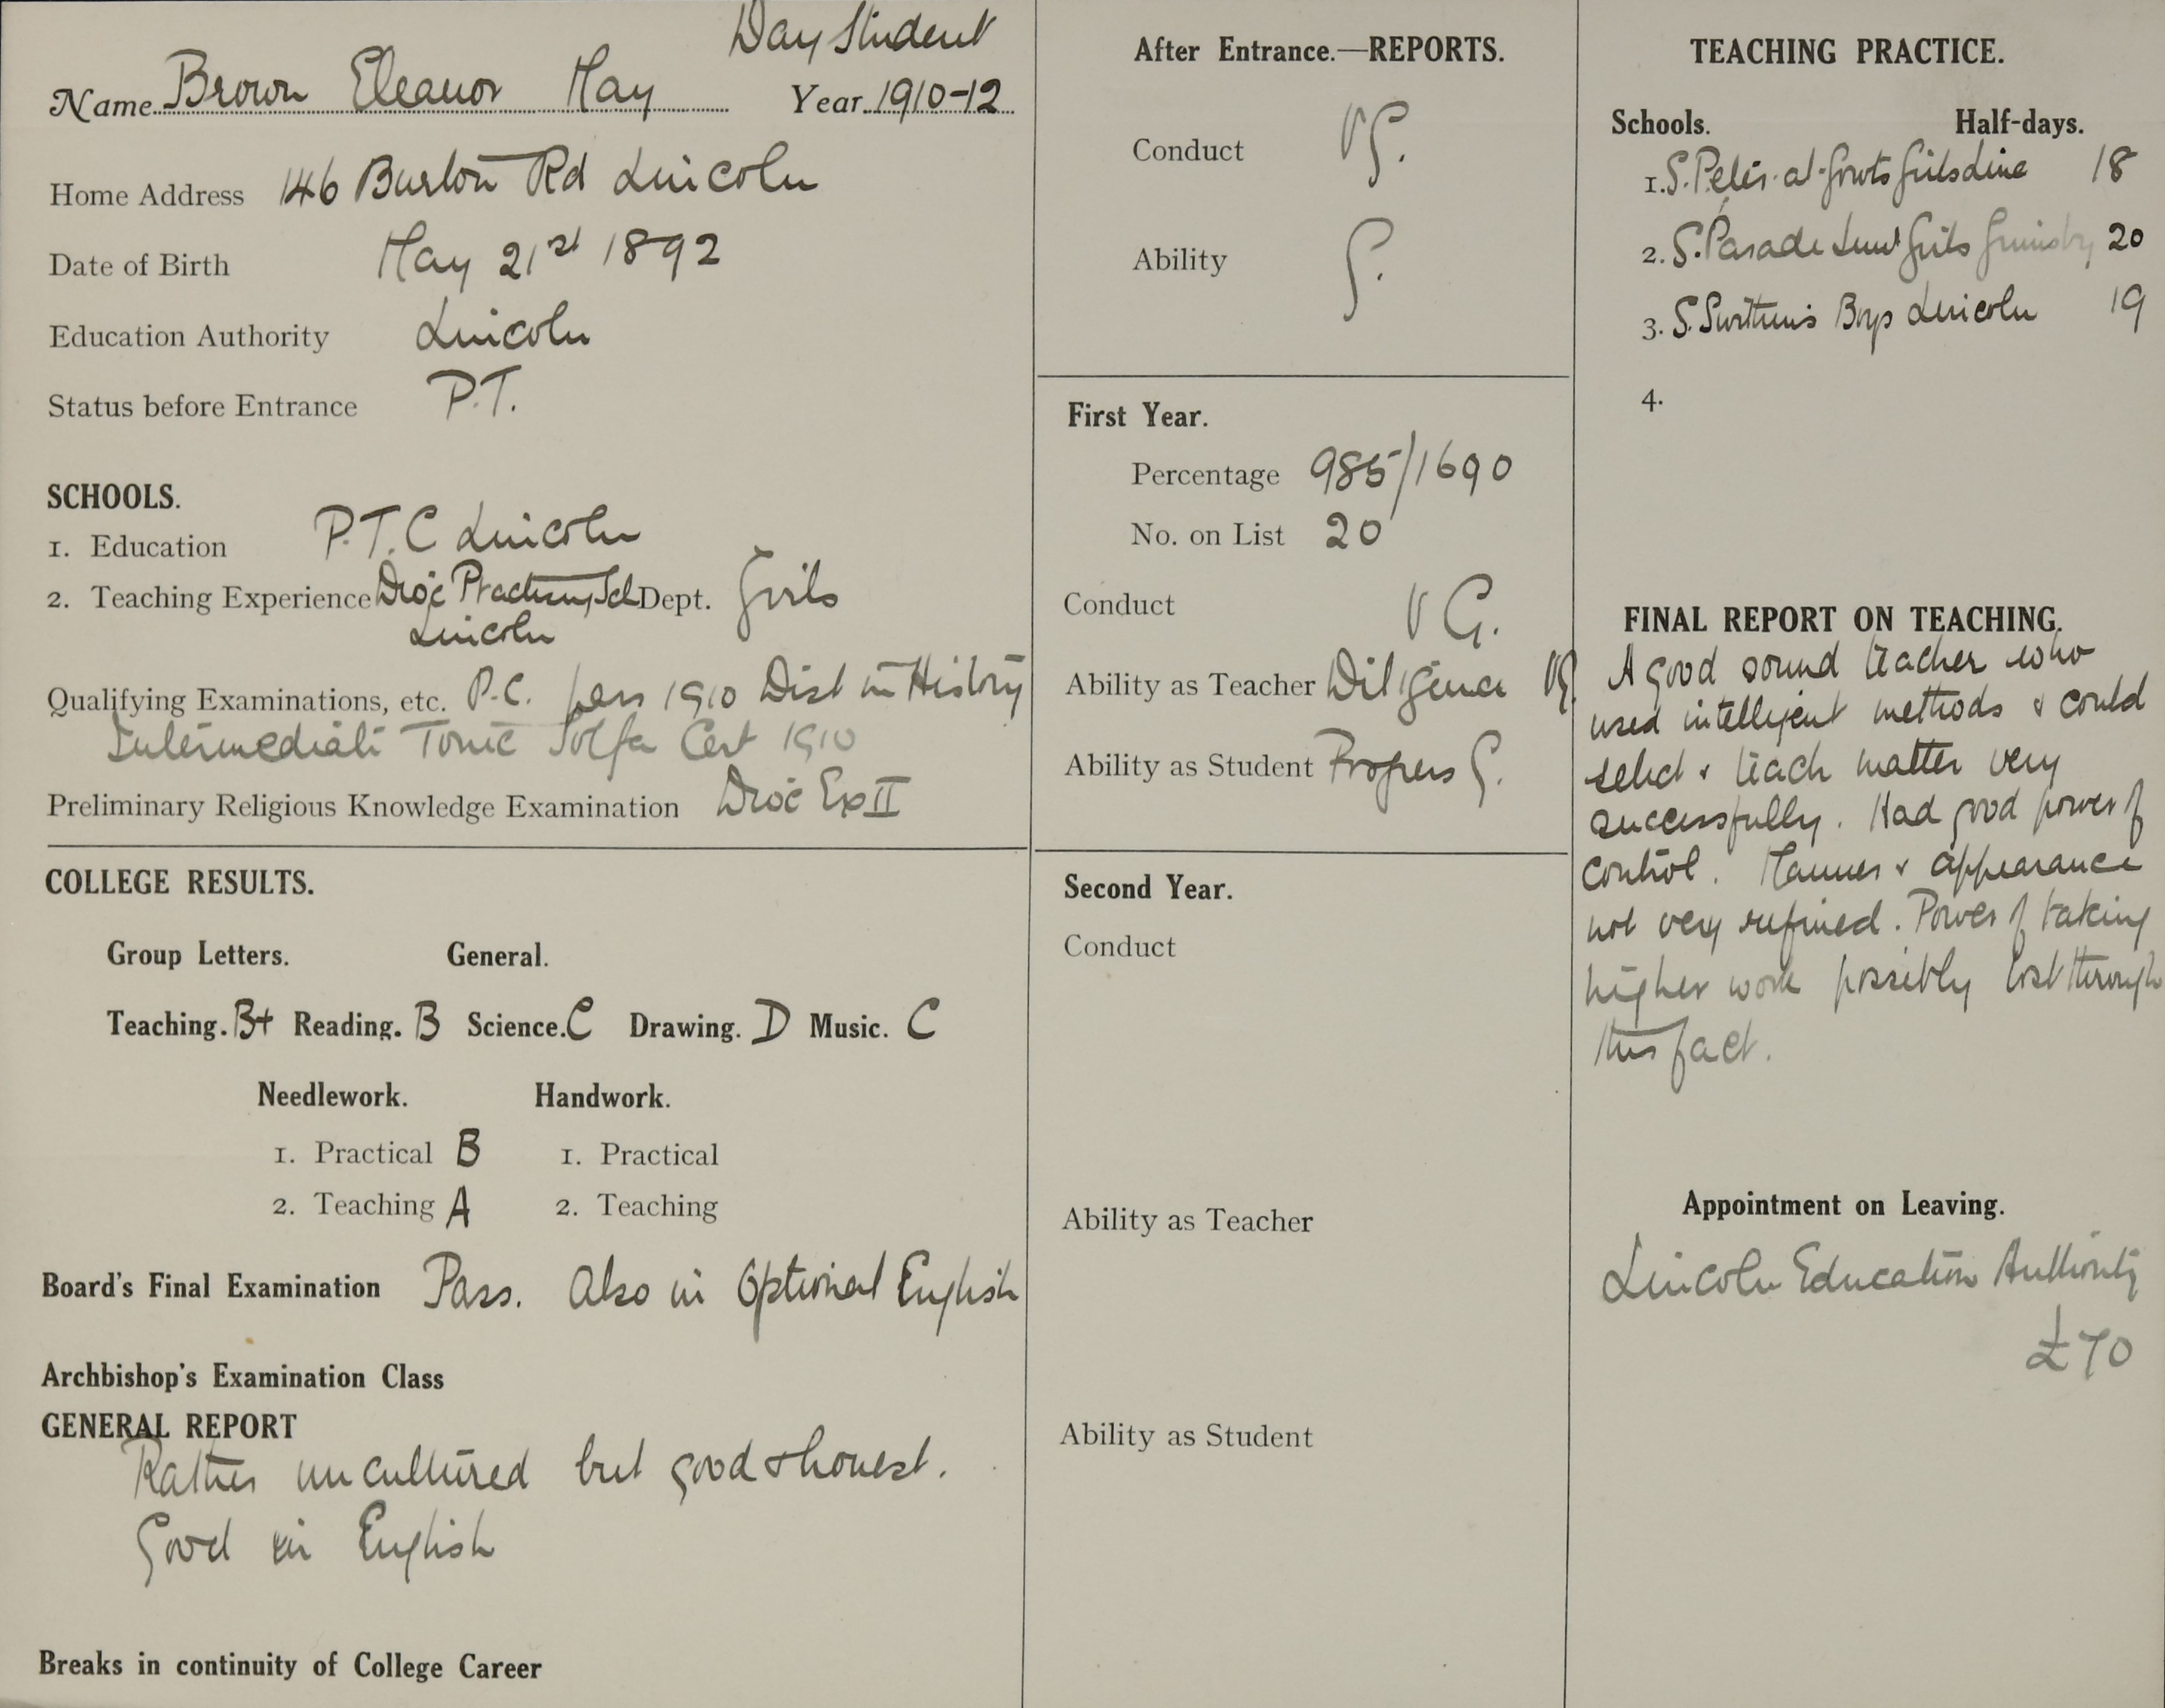 Day Student
Name Brown Eleanor May Year 1910-12
Home Address 146 Burton Rd Lincoln
Date of Birth May 21st 1892
Education Authority Lincoln
Status before Entrance P.T.
SCHOOLS.
1. Education P.T.C Lincoln
2. Teaching Experience Dioc Practising Sch Dept. Girls
Lincoln
Qualifying Examinations, etc. P.C. pass 1910 Dist in History
Intermediate Tonic Solfa Cert 1910
Preliminary Religious Knowledge Examination Dioc Ex II
COLLEGE RESULTS.
Group Letters. General.
Teaching. B+ Reading. B Science. C Drawing. D Music. C
Needlework. Handwork.
1. Practical B 1. Practical
2. Teaching A 2. Teaching
Board's Final Examination Pass. Also in Optional English
Archbishop's Examination Class
GENERAL REPORT
Rather uncultured but good & honest.
Good in English
Breaks in continuity of College Career
After Entrance.—REPORTS.
Conduct VG.
Ability G.
First Year.
Percentage 985/1690
No. on List 20
Conduct VG.
Ability as Teacher Diligence VG.
Ability as Student Progress G.
Second Year.
Conduct
Ability as Teacher
Ability as Student
TEACHING PRACTICE.
Schools. Half-days.
1. S. Peter-at-Gowts Girls Linc 18
2. S. Parade Girls Grimsby 20
3. S. Swithins Boys Lincoln 19
4.
FINAL REPORT ON TEACHING.
A good sound teacher who
used intelligent methods & could
select & teach matter very
successfully. Had good power of
control. Manner & appearance
not very refined. Power of taking
higher work possibly lost through
this fact.
Appointment on Leaving.
Lincoln Education Authority
£70